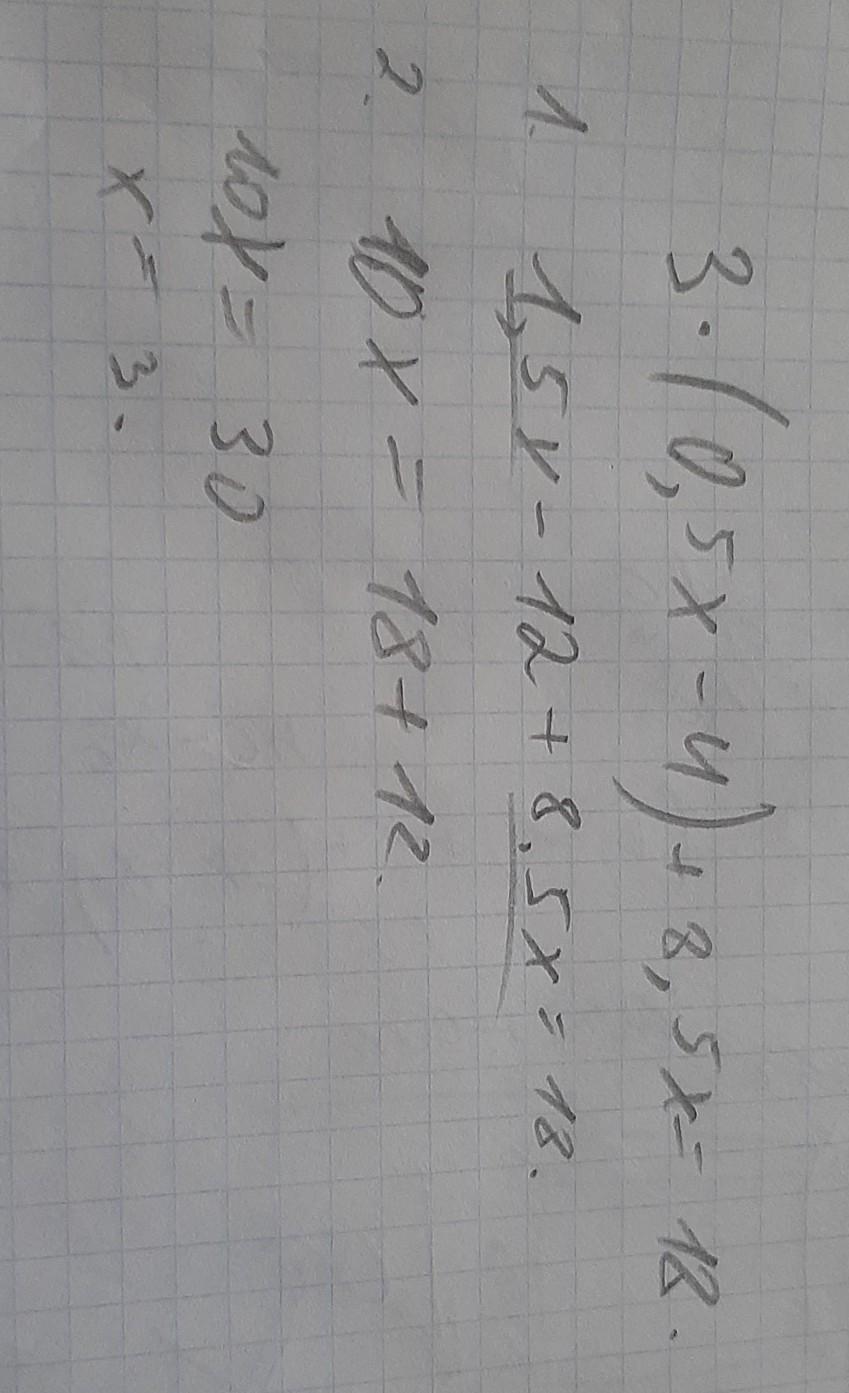 3·(0,5x-4)+8,5x=18.
1. 1,5x-12+8,5x=18.
2. 10x=18+12.
10x=30
x=3.